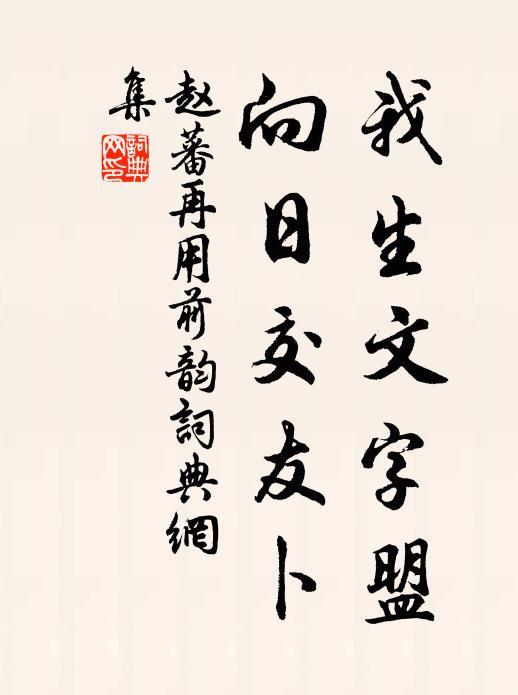 我生文字盟
向日交友卜
赵蕃再用前韵詞典網
集
詞典
网印